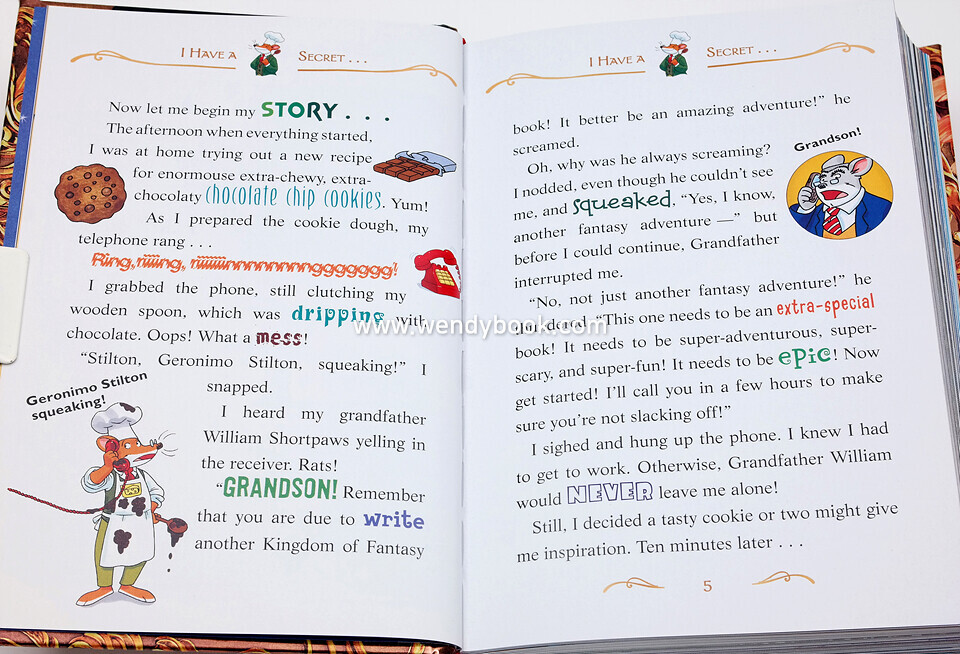 I HAVE A SECRET . . .
Now let me begin my STORY . . .
The afternoon when everything started,
I was at home trying out a new recipe
for enormouse extra-chewy, extra-
chocolaty chocolate chip cookies. Yum!
As I prepared the cookie dough, my
telephone rang . . .
I grabbed the phone, still clutching my
wooden spoon, which was dripping with
chocolate. Oops! What a mess!
"Stilton, Geronimo Stilton, squeaking!" I
snapped.
Geronimo Stilton
squeaking!
I heard my grandfather
William Shortpaws yelling in
the receiver. Rats!
"GRANDSON! Remember
that you are due to write
another Kingdom of Fantasy
I HAVE A SECRET . . .
book! It better be an amazing adventure!" he
screamed.
Oh, why was he always screaming?
I nodded, even though he couldn't see
me, and squeaked, "Yes, I know,
another fantasy adventure —" but
before I could continue, Grandfather
interrupted me.
Grandson!
"No, not just another fantasy adventure!" he
"This one needs to be an extra-special
book! It needs to be super-adventurous, super-
scary, and super-fun! It needs to be epic! Now
get started! I'll call you in a few hours to make
sure you're not slacking off!"
I sighed and hung up the phone. I knew I had
to get to work. Otherwise, Grandfather William
would NEVER leave me alone!
Still, I decided a tasty cookie or two might give
me inspiration. Ten minutes later . . .
5
www.wendybook.com